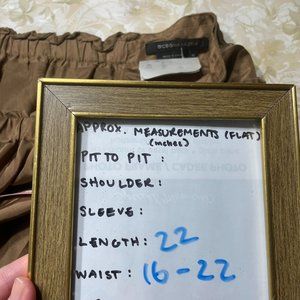 BCBGMAXAZRIA
APPROX. MEASUREMENTS (FLAT)
(inches)
PIT TO PIT :
SHOULDER :
SLEEVE :
LENGTH : 22
WAIST : 16-22